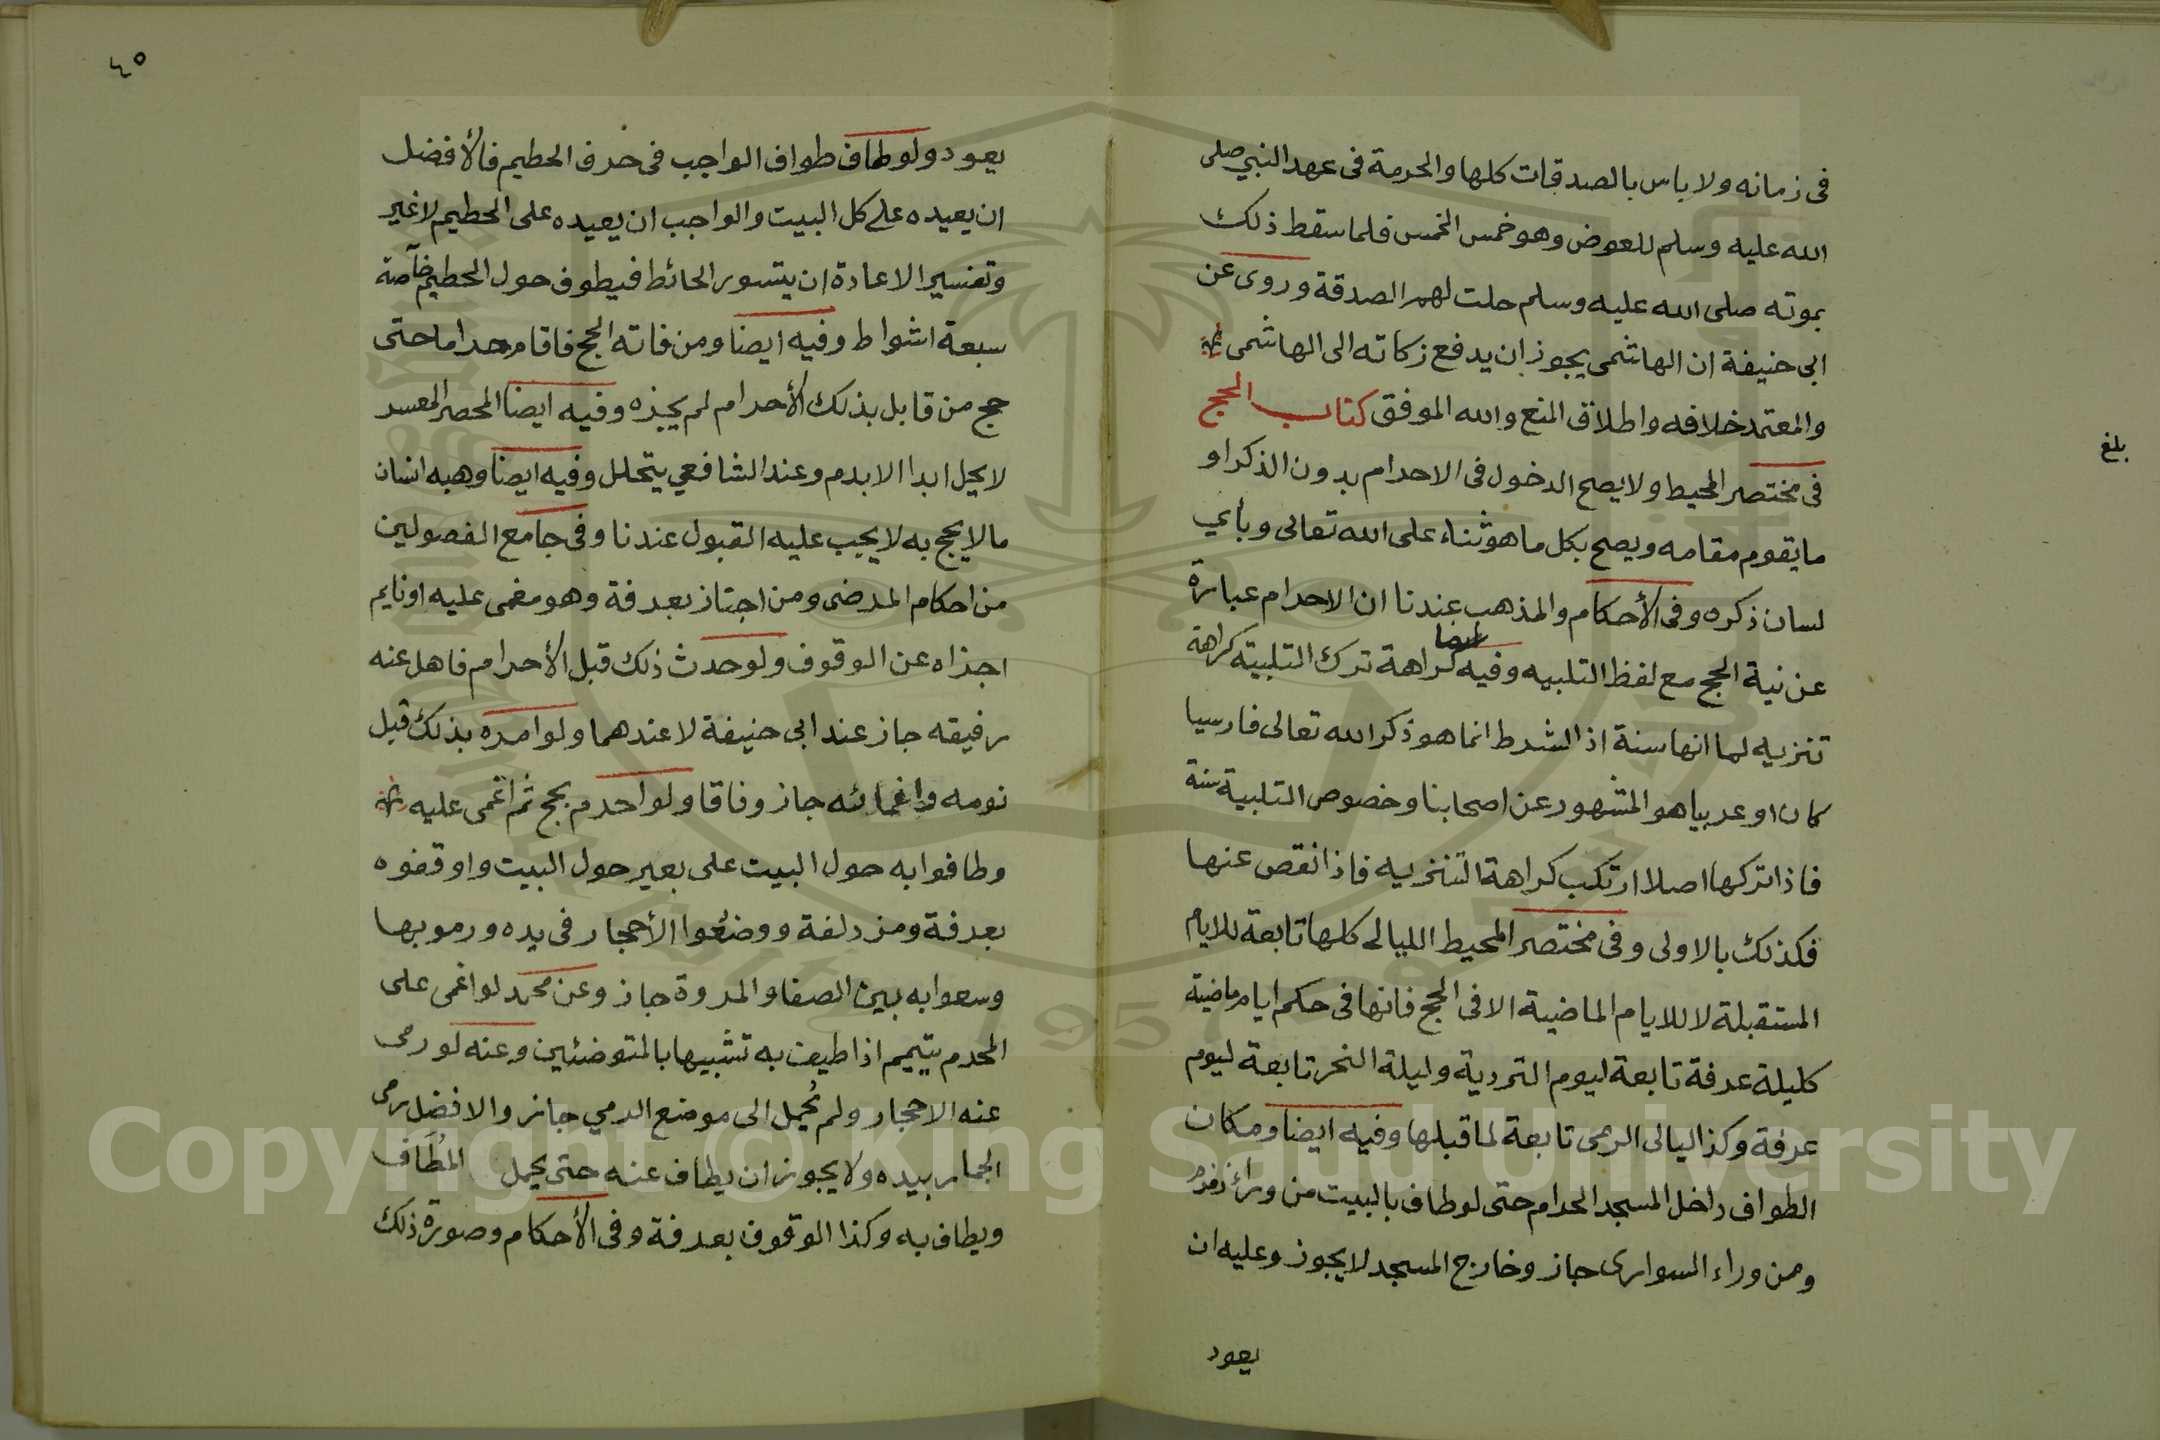 فى زمانه ولا باس بالصدقات كلها والحرمة فى عهد النبي صلى
الله عليه وسلم للعوض وهو خمس الخمس فلما سقط ذلك
بموته صلى الله عليه وسلم حلت لهم الصدقة وروى عن
ابى حنيفة ان الهاشمى يجوز ان يدفع زكاته الى الهاشمى
والمعتمد خلافه واطلاق المنع والله الموفق كتاب الحج
فى مختصر المحيط ولا يصح الدخول فى الاحرام بدون الذكر او
ما يقوم مقامه ويصح بكل ما هو ثناء على الله تعالى وبأي
لسان ذكره وفى الأحكام والمذهب عندنا ان الاحرام عبارة
عن نية الحج مع لفظ التلبيه وفيه ايضا كراهة ترك التلبيته كراهة
تنزيه لما انها سنة اذ الشرط انما هو ذكر الله تعالى فارسيا
كان او عربيا هو المشهور عن اصحابنا وخصوص التلبية سنة
فاذا تركها اصلا ارتكب كراهة التنزيه فاذا نقص عنها
فكذلك بالاولى وفى مختصر المحيط الليالى كلها تابعة للايام
المستقبلة لا للايام الماضية الا فى الحج فانها فى حكم ايام ماضية
كليلة عرفة تابعة ليوم التروية وليلة النحر تابعة ليوم
عرفة وكذا ليالى الرمى تابعة لما قبلها وفيه ايضا ومكان
الطواف داخل المسجد الحرام حتى لو طاف بالبيت من وراء زمزم
ومن وراء السوارى جاز وخارج المسجد لا يجوز وعليه ان
يعود
بلغ
٤٥
يعود ولو طاف طواف الواجب فى خرف الحطيم فالأفضل
ان يعيده على كل البيت والواجب ان يعيده على الحطيم لا غير
وتفسير الاعادة ان يتسور الحائط فيطوف حول الحطيم خآصة
سبعة اشواط وفيه ايضا ومن فاته الحج فاقام حراما حتى
حج من قابل بذلك الأحرام لم يجزه وفيه ايضا المحصر المعسر
لا يحل ابدا الا بدم وعند الشافعي يتحلل وفيه ايضا وهبه انسان
ما لا يحج به لا يجب عليه القبول عندنا وفى جامع الفصولين
من احكام المرضى ومن اجتاز بعرفة وهو مغمى عليه او نايم
اجزاه عن الوقوف ولو حدث ذلك قبل الأحرام فاهل عنه
رفيقه جاز عند ابى حنيفة لا عندهما ولو امره بذلك قبل
نومه واغمائه جاز وفاقا ولو احرم بحج ثم اغمى عليه
وطافوا به حول البيت على بعير حول البيت واوقفوه
بعرفة ومزدلفة ووضعُوا الأحجار فى يده ورمو بها
وسعوا به بين الصفا والمروة جاز وعن محمد لو اغمى على
المحرم يتيمم اذا طيف به تشبيها بالمتوضئين وعنه لو رمى
عنه الاحجار ولم يُحمل الى موضع الرمي جاز والافضل رمى
الجمار بيده ولا يجوز ان يطاف عنه حتى يحمل المُطَاف
ويطاف به وكذا الوقوف بعرفة وفى الأحكام وصورة ذلك
Copyright © King Saud University